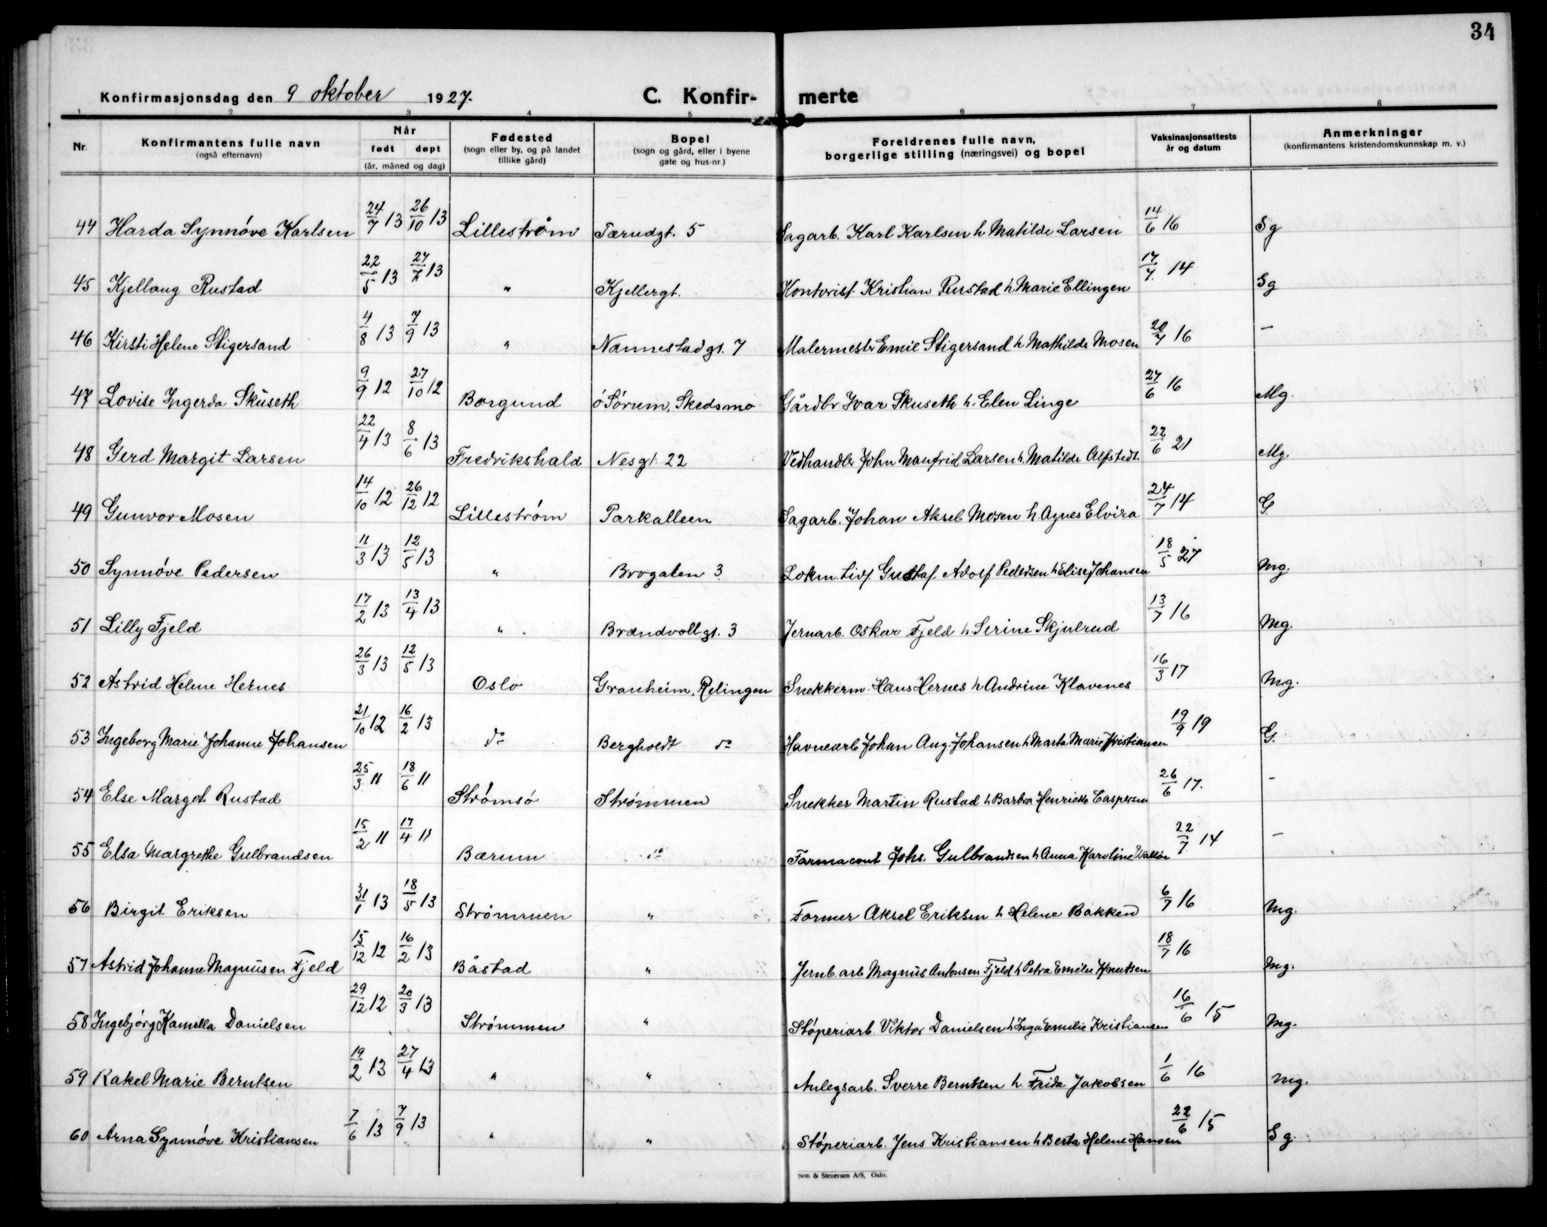 34
Konfirmasjonsdag den 9 oktober 1927. C. Konfirmerte
1 2 3 4 5 6 7 8
Nr. Konfirmantens fulle navn (også efternavn) Når født døpt (år, måned og dag) Fødested (sogn eller by, og på landet tillike gård) Bopel (sogn og gård, eller i byene gate og hus-nr.) Foreldrenes fulle navn, borgerlige stilling (næringsvei) og bopel Vaksinasjonsattests år og datum Anmerkninger (konfirmantens kristendomskunnskap m. v.)
44 Harda Synnøve Karlsen 24/7 13 26/10 13 Lillestrøm Tærudgt. 5 Sagarb. Karl Karlsen h Matilde Larsen 14/6 16 Sg
45 Kjellaug Rustad 22/5 13 27/7 13 " Kjellergt. Kontorist Kristian Rustad h Marie Ellingen 17/7 14 Sg
46 Kirsti Helene Stigersand 4/8 13 7/9 13 " Nannestadgt. 7 Malermestr Emil Stigersand h Mathilde Mosen 20/7 16 –
47 Lovise Ingerda Skuseth 9/9 12 27/10 12 Borgund ó Sørum, Skedsmo Gårdbr Ivar Skuseth h. Elen Linge 27/6 16 Mg.
48 Gerd Margit Larsen 22/4 13 8/6 13 Fredrikshald Nesgt. 22 Vedhandler John Manfrid Larsen h. Matilde Alfstedt. 22/6 21 Mg.
49 Gunvor Mosen 14/10 12 26/12 12 Lillestrøm Parkalleen Sagarb. Johan Aksel Mosen h Agnes Elvira 24/7 14 G.
50 Synnøve Pedersen 11/3 13 12/5 13 " Brogaten 3 Lokm. Gustaf Adolf Pedersen h Elise Johansen 18/5 27 Mg.
51 Lilly Fjeld 17/2 13 13/4 13 " Brændvollgt. 3 Jernarb. Oskar Fjeld h Serine Skjulrud 13/7 16 Mg.
52 Astrid Helene Hernes 26/3 13 12/5 13 Oslo Granheim, Relingen Snekkerm. Hans Hernes h Andrine Klavenes 16/3 17 Mg.
53 Ingeborg Marie Johanne Johansen 21/10 12 16/2 13 do Bergholdt do Havnearb Johan Aug. Johansen h Marta Marie Kristiansen 19/9 19 G.
54 Else Marget Rustad 25/3 11 18/6 11 Strømsø Strømmen Snekker Martin Rustad h Barbra Henriette Caspersen 26/6 17. –
55 Elsa Margrethe Gulbrandsen 15/2 11 17/4 11 Bærum do Johs. Gulbrandsen h Anna Karoline 22/7 14 –
56 Birgit Eriksen 31/1 13 18/5 13 Strømmen " Former Aksel Eriksen h Helene Bakken 6/7 16 Mg.
57 Astrid Johanne Magnusen Fjeld 15/12 12 16/2 13 Båstad " Jernb arb Magnus Antonsen Fjeld h Petra Emelie Knutsen 18/7 16 Mg.
58 Ingebjørg Kamilla Danielsen 29/12 12 20/3 13 Strømmen " Støperiarb. Viktor Danielsen h Inga Emilie Kristiansen 16/6 15 Mg.
59 Rakel Marie Berntsen 19/2 13 27/4 13 " " Anlegsarb. Sverre Berntsen h. Frida Jakobsen 1/6 16 Mg.
60 Arna Synnøve Kristiansen 7/6 13 7/9 13 " " Støperiarb. Jens Kristiansen h Berta Helene Hansen 22/6 15 Sg.
Sem & Stenersen A/S, Oslo.